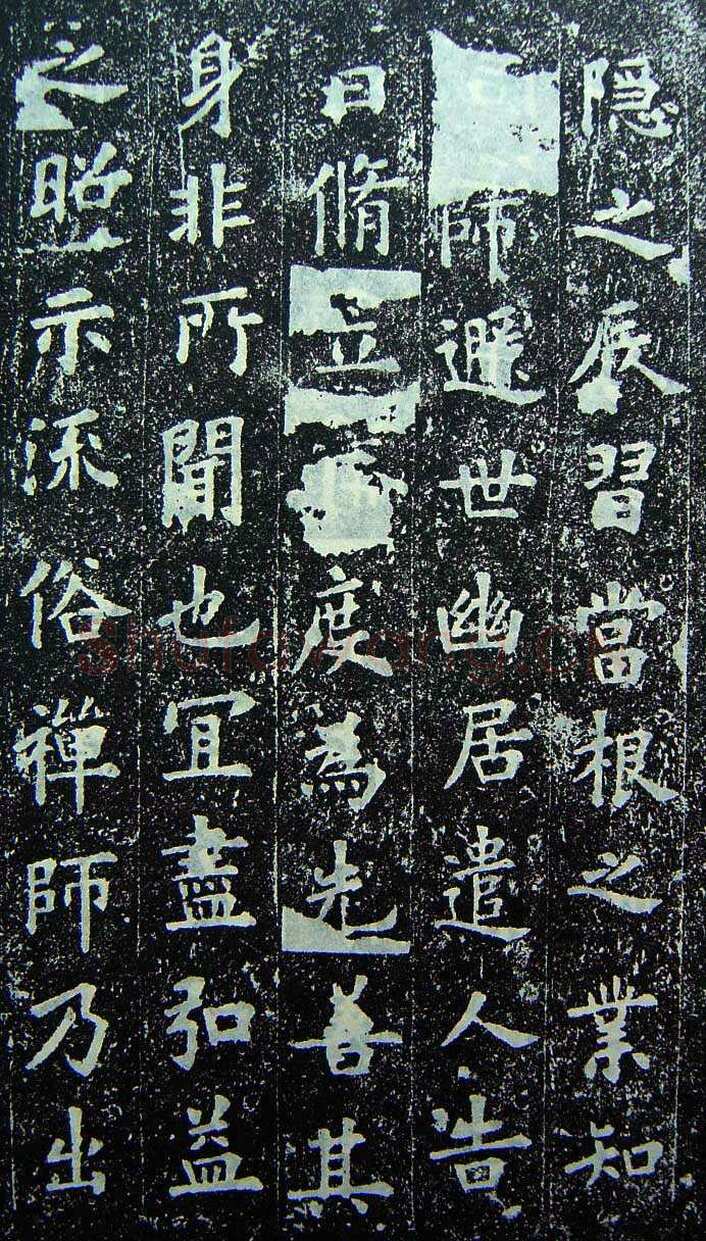 隐之疾習當根之業知
師遯世幽居遣人告
曰脩立度為先善其
身非所聞也宜盡弘益
之昭示流俗禪師乃出